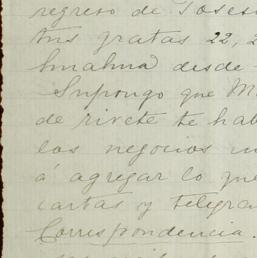 regreso de
tus gratas 22, 2
desde
Supongo que M
de rivete te hab
los negocios
á agregar lo que
cartas y telegra
Correspondencia.